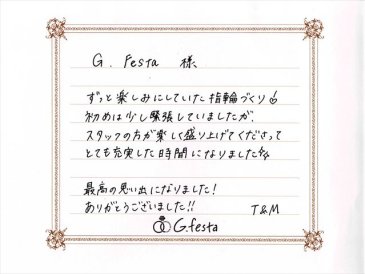 G. Festa 様
ずっと楽しみにしていた指輪づくり
初めは少し緊張していましたが、
スタッフの方が楽しく盛り上げてくださって
とても充実した時間になりました
最高の思い出になりました!
ありがとうございました!! T&M
G.festa